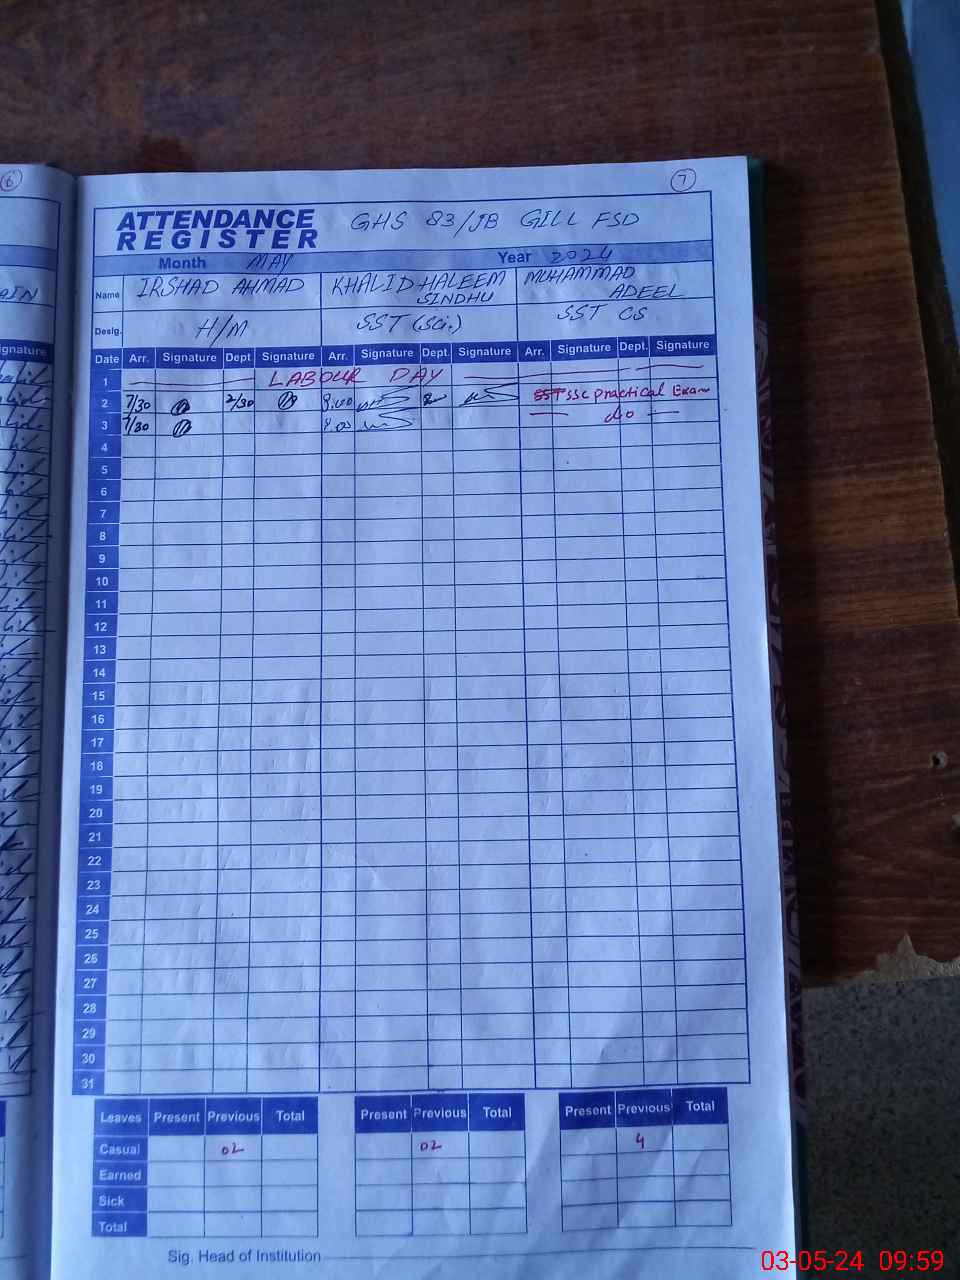 6
7
ATTENDANCE
REGISTER
GHS 83/JB GILL FSD
Month MAY Year 2024
Name IRSHAD AHMAD KHALID HALEEM SINDHU MUHAMMAD ADEEL
Desig. H/M SST (Sci.) SST CS
Date Arr. Signature Dept Signature Arr. Signature Dept. Signature Arr. Signature Dept. Signature
1 LABOUR DAY
2 7/30 2/30 8.00 SST SSC Practical Exam
3 7/30 do
4
5
6
7
8
9
10
11
12
13
14
15
16
17
18
19
20
21
22
23
24
25
26
27
28
29
30
31
Leaves Present Previous Total Present Previous Total Present Previous Total
Casual 02 02 4
Earned
Sick
Total
Sig. Head of Institution
Signature
03-05-24 09:59